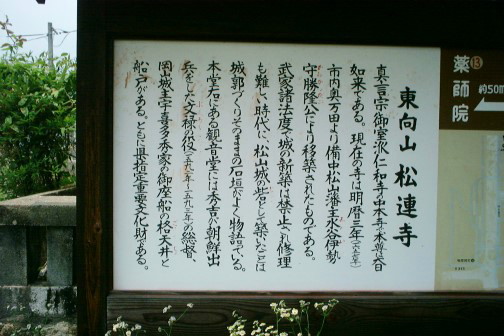 東向山 松連寺
真言宗御室派仁和寺の中本寺で本尊は大日
如来である。現在の寺は明暦三年(一六五七年)
市内奥万田より備中松山藩主水谷伊勢
守勝隆公により移築されたものである。
武家諸法度で城の新築は禁止され修理
も難い時代に、松山城の砦として築いたことは
城郭づくりそのままの石垣がよく物語っている。
本堂右にある観音堂には秀吉が朝鮮出
兵をした文禄の役(一五九二年〜一五九三年)の総督、
岡山城主宇喜多秀家の御座船の格天井と
船戸がある。ともに県指定重要文化財である。
⑬
薬師院
約50m